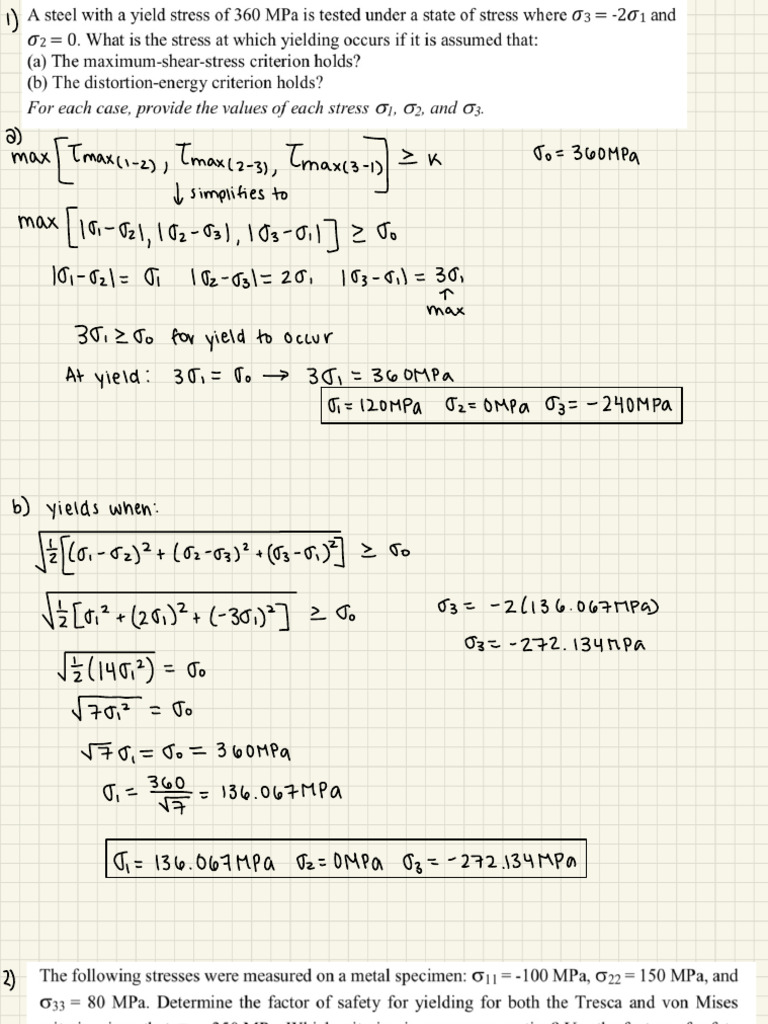 1) A steel with a yield stress of 360 MPa is tested under a state of stress where σ3 = -2σ1 and
σ2 = 0. What is the stress at which yielding occurs if it is assumed that:
(a) The maximum-shear-stress criterion holds?
(b) The distortion-energy criterion holds?
For each case, provide the values of each stress σ1, σ2, and σ3.
a)
max [τmax(1-2), τmax(2-3), τmax(3-1)] ≥ K σ0 = 360MPa
↓ simplifies to
max [|σ1-σ2|, |σ2-σ3|, |σ3-σ1|] ≥ σ0
|σ1-σ2| = σ1 |σ2-σ3| = 2σ1 |σ3-σ1| = 3σ1
↑
max
3σ1 ≥ σ0 for yield to occur
At yield: 3σ1 = σ0 → 3σ1 = 360MPa
σ1 = 120MPa σ2 = 0MPa σ3 = -240MPa
b) yields when:
√½[(σ1-σ2)² + (σ2-σ3)² + (σ3-σ1)²] ≥ σ0
√½[σ1² + (2σ1)² + (-3σ1)²] ≥ σ0 σ3 = -2(136.067MPa)
σ3 = -272.134MPa
√½(14σ1²) = σ0
√7σ1² = σ0
√7 σ1 = σ0 = 360MPa
σ1 = 360/√7 = 136.067MPa
σ1 = 136.067MPa σ2 = 0MPa σ3 = -272.134MPa
2) The following stresses were measured on a metal specimen: σ11 = -100 MPa, σ22 = 150 MPa, and
σ33 = 80 MPa. Determine the factor of safety for yielding for both the Tresca and von Mises